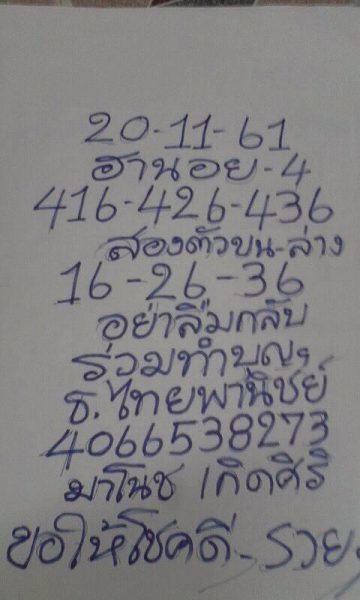 20-11-61
ฮานอย-4
416-426-436
สองตัวบน-ล่าง
16-26-36
อย่าลืมกลับ
ร่วมทำบุญฯ
ธ.ไทยพานิชย์
4066538273
มาโนช เกิดศิริ
ขอให้โชคดี-รวย